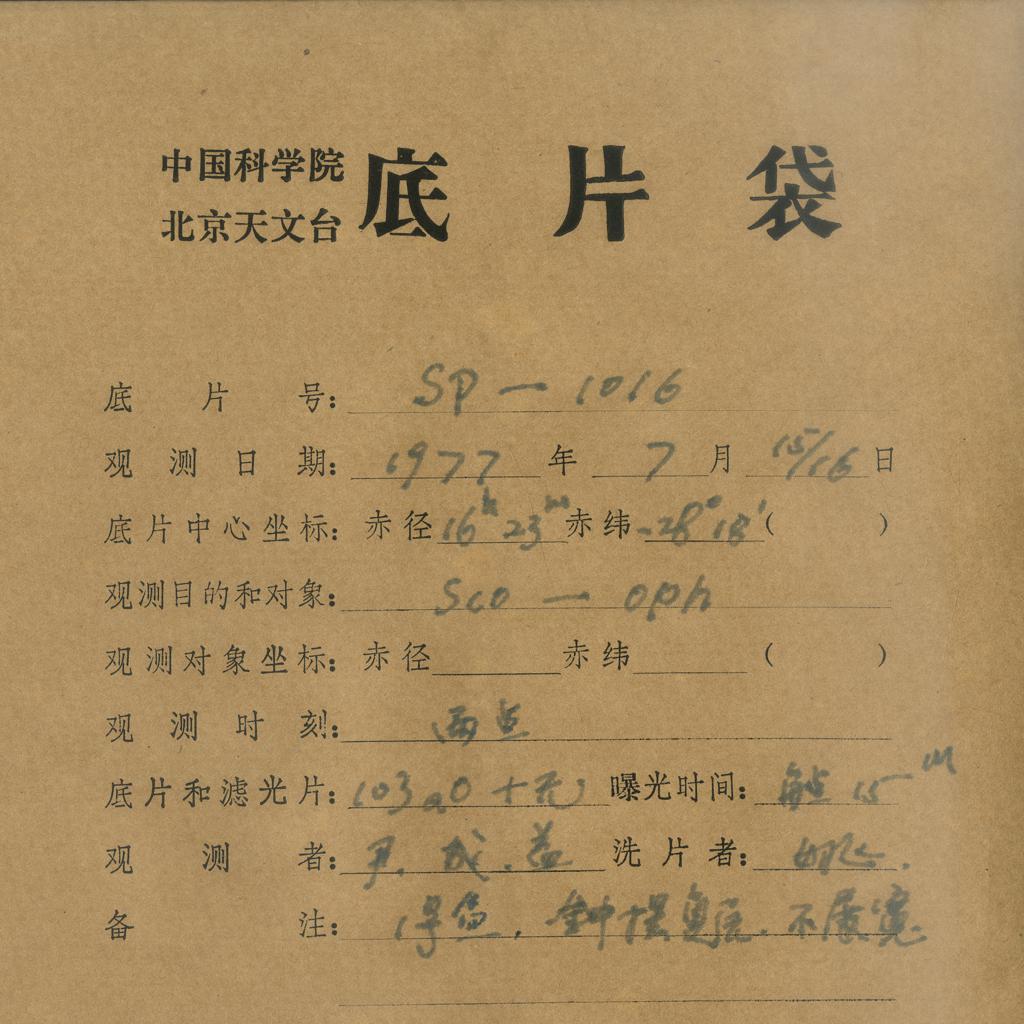 中国科学院
北京天文台
底片袋
底片号: SP — 1016
观测日期: 1977 年 7 月 15/16 日
底片中心坐标: 赤径 16h 23m 赤纬 -28° 18′ ( )
观测目的和对象: Sco — oph
观测对象坐标: 赤径 赤纬 ( )
观测时刻: 两点
底片和滤光片: 103aO + 无 曝光时间: 每点 15m
观测者: 尹. 成. 益 洗片者:
备注: 钟摆 不展宽